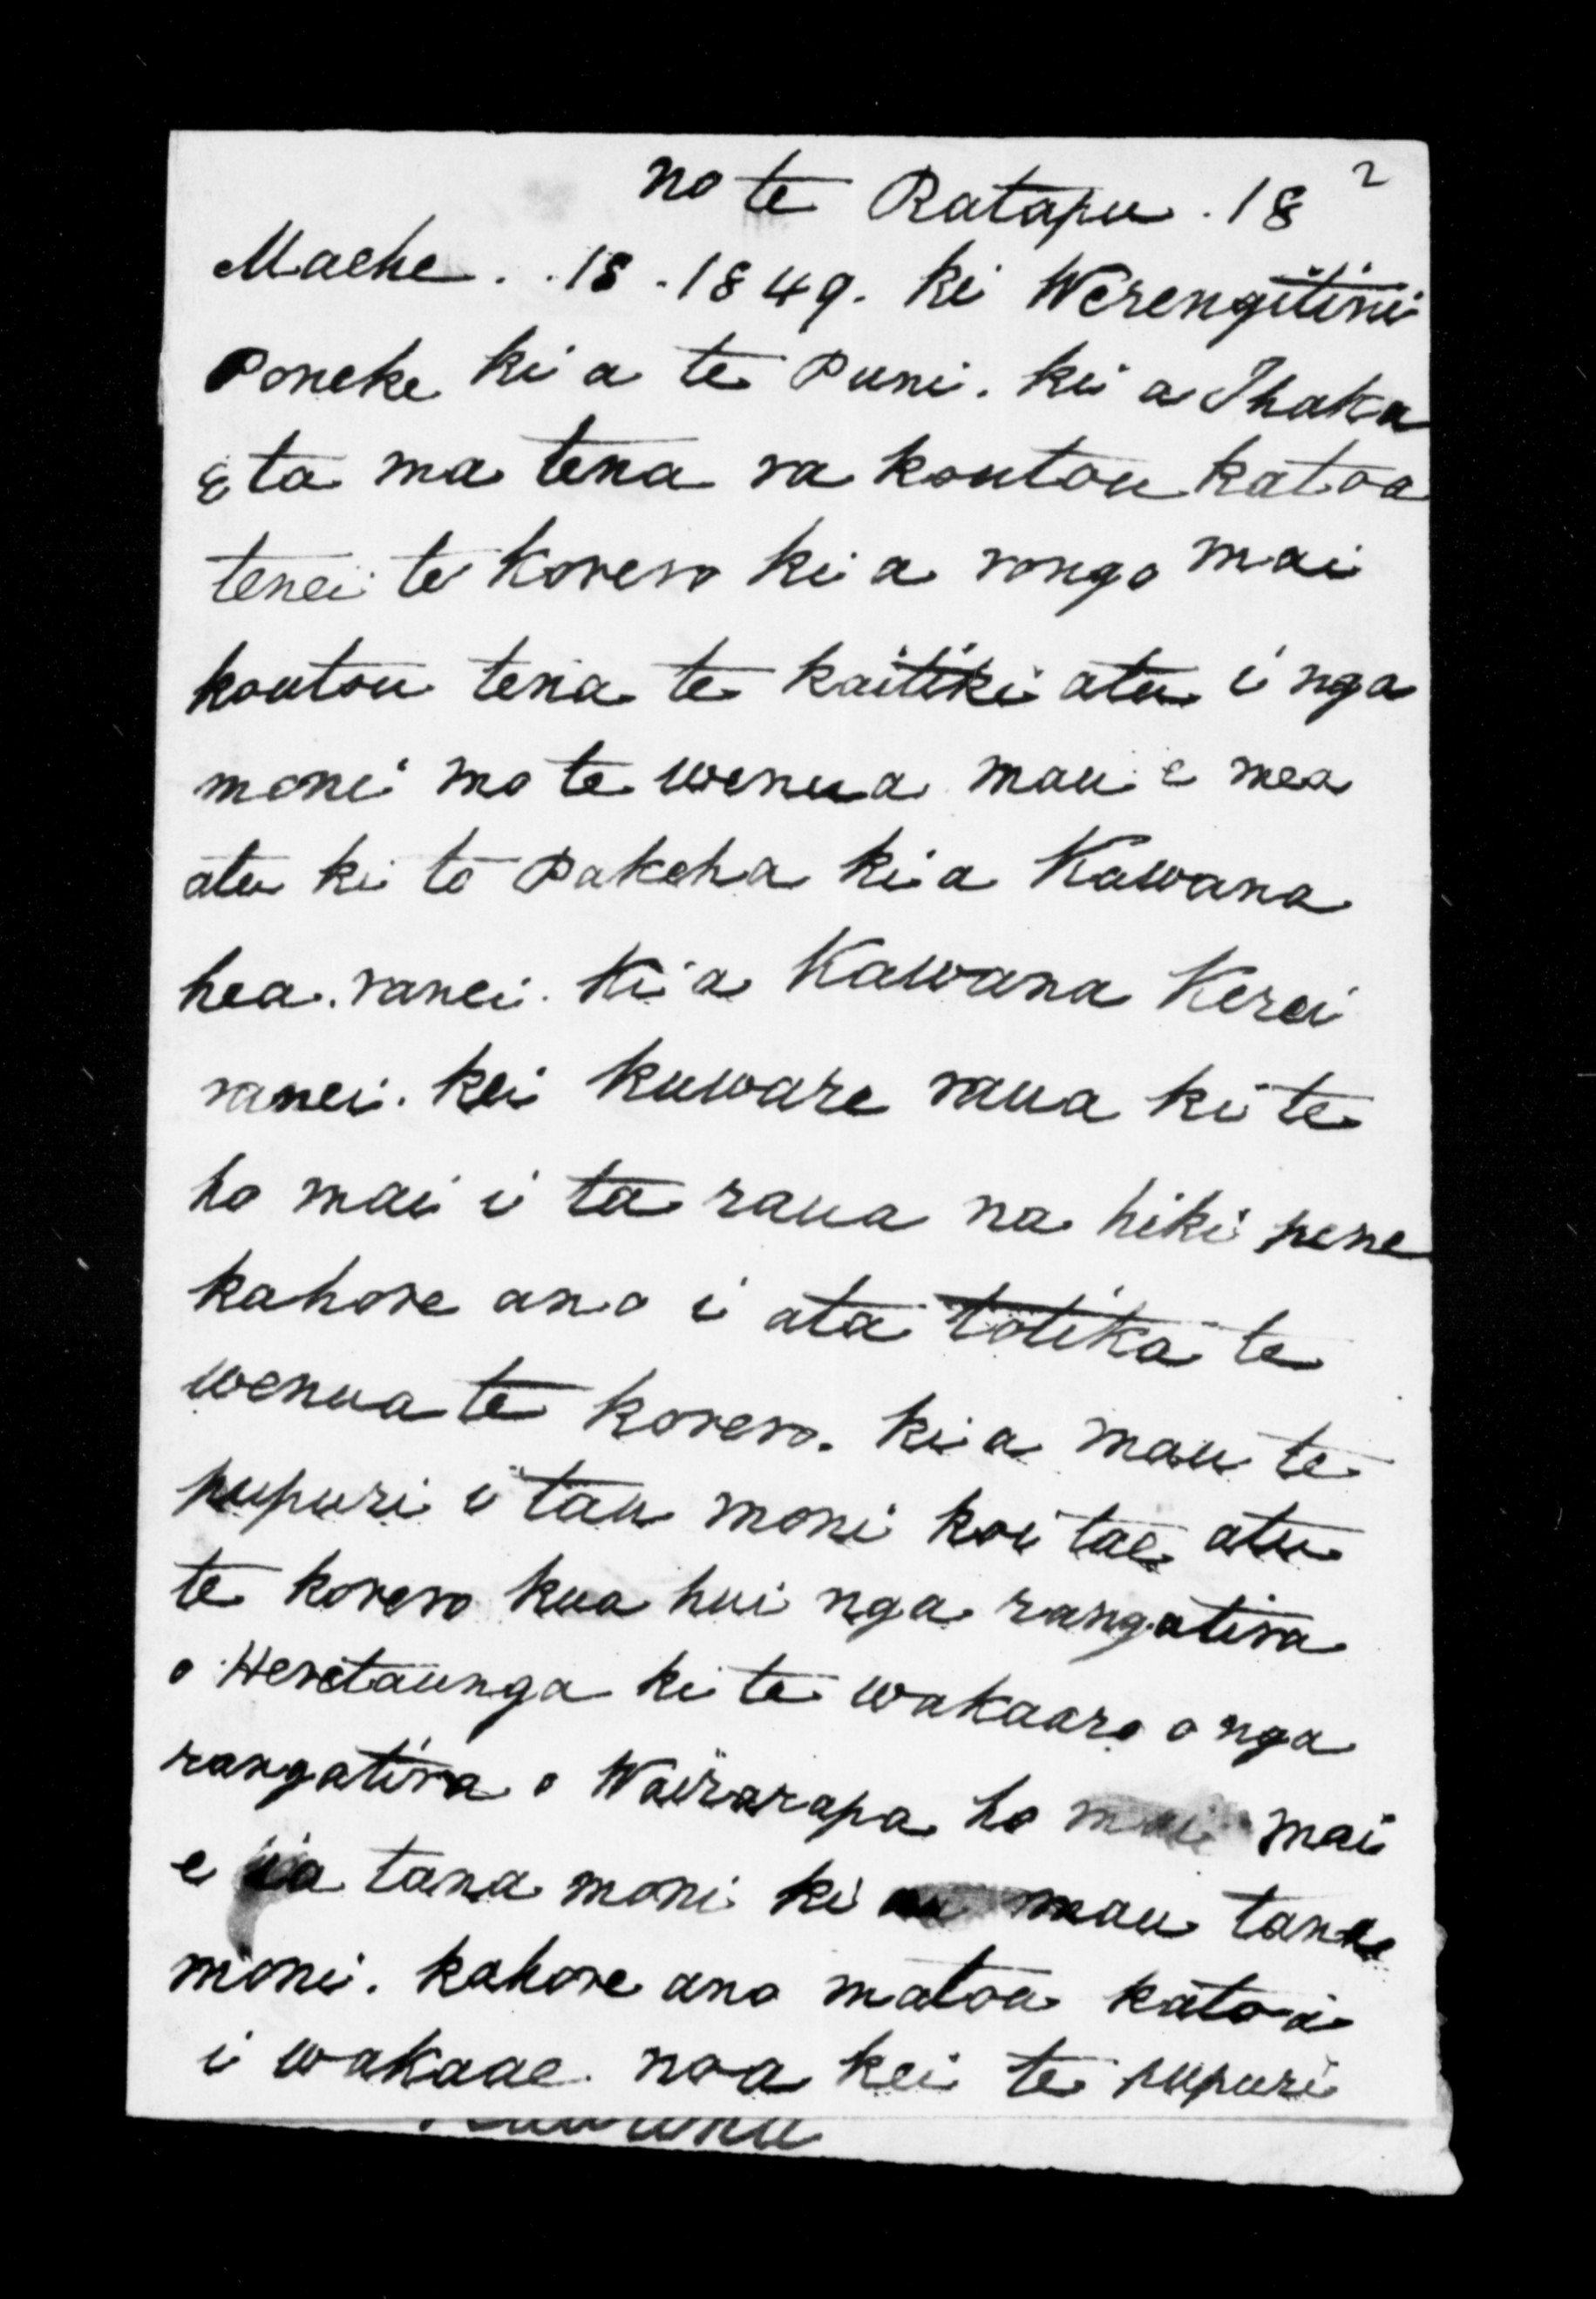 no te Ratapu . 18 2
Maehe . . 18 . 1849 . ki Werengitini
Poneke ki a te Puni . ki a Ihaka
E ta ma tena ra koutou katoa
tenei te korero ki a rongo mai
koutou tena te kaitiki atu i nga
moni mo te wenua mau e mea
atu ki to Pakeha ki a Kawana
hea . ranei . Ki a Kawana Kerei
ranei . kei kuware raua ki te
ho mai i ta raua na hiki pene
kahore ano i ata totika te
wenua te korero . ki a mau te
pupuri i tau moni koi tae atu
te korero kua hui nga rangatira
o Heretaunga ki te wakaaro o nga
rangatira o Wairarapa ho mai mai
e ia tana moni ki mau tana
moni . kahore ano matou katoa
i wakaae noa kei te pupuri